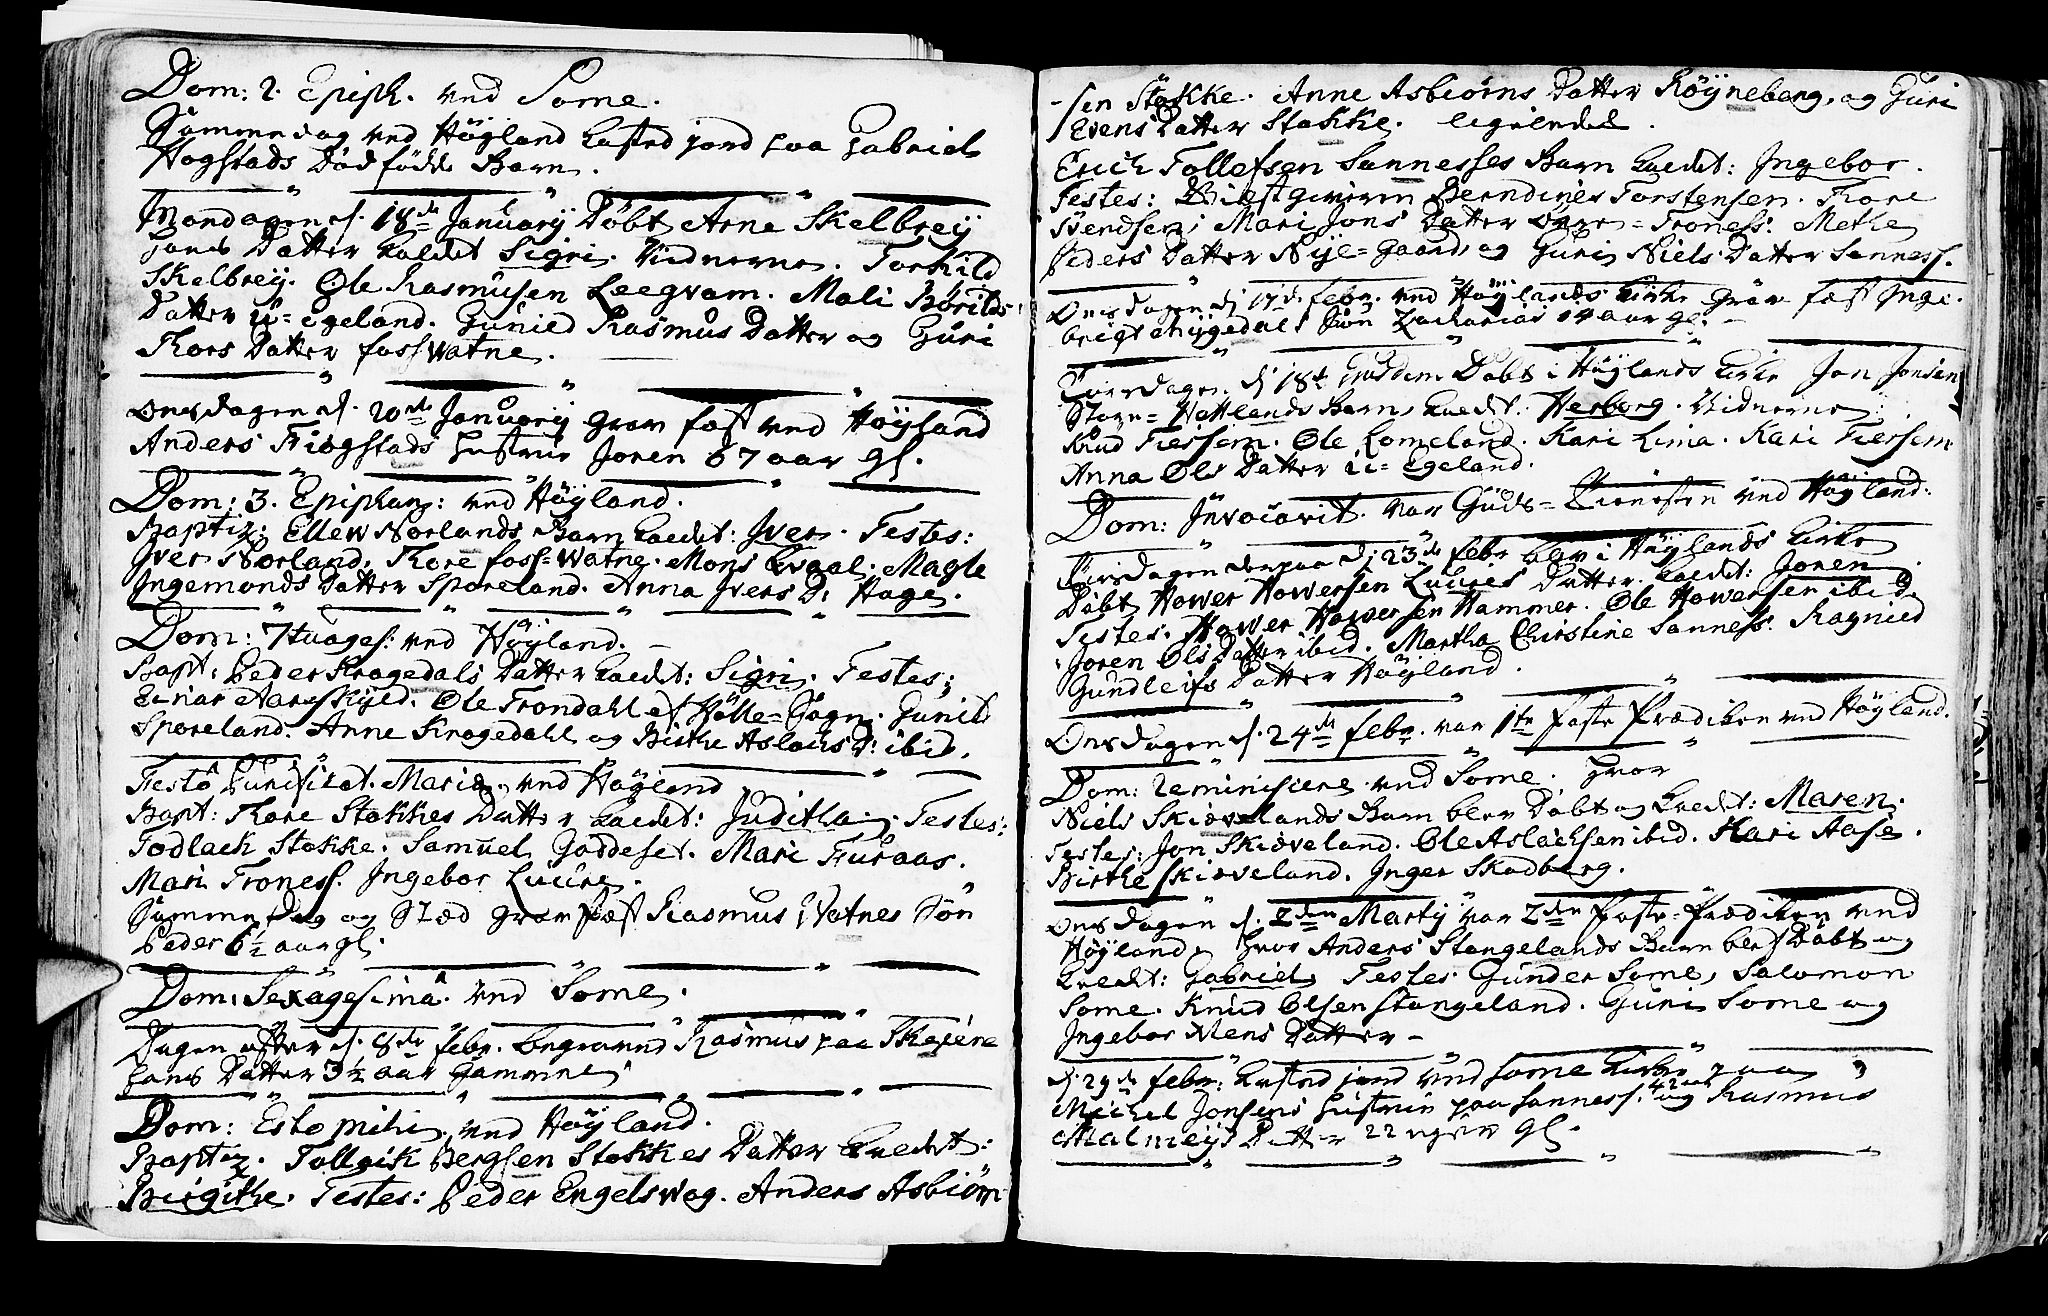 Dom: 2. Epiph. ved Some.
Samme dag ved Höyland Kasted jord paa Gabriel
Hogstads Dödfödde Barn.
Mandagen d. 18de Januarij Döbt Arne Skelbrey
hans Datter kaldet Sigri. Vidnerne. Torkild
Skelbrey. Ole Rasmusen Leegvam. Mali Börilds
Datter U=Egeland. Gunild Rasmus Datter og Guri
Thors Datter Foss Watne.
Onsdagen d. 20de Januarij Grav fæst ved Höyland
Anders Fiogstads Hustrue Joren 67 aar gl.
Dom: 3. Epiphan: ved Höyland.
Baptiz: Ellew Norlands Barn kaldet: Iver. Testes:
Iver Norland, Thore Foss=Watne. Mons Qvaal. Magle
Ingemonds Datter Sporeland. Anna Ivers D: Hage.
Dom: 7tuages: ved Höyland.
Bapt: Peder Kragedals Datter kaldet: Sigri. Testes:
Einar Aareskyed. Ole Trondahl af Holle=Sogn. Gunild
Sporeland. Anne Kragedahl og Birthe Aslachs D: ibid.
Festo Purificat. Mariæ, ved Höyland
Bapt: Thore Stokkes Datter kaldet: Juditha. Testes:
Todlach Stokke. Samuel Goddeset. Mari Furaas.
Mari Troness. Ingebor Luure.
Samme Dag og Stæd Grav fæst Rasmus Watnes Sön
Peder 6½ aar gl.
Dom: Sexagesima. ved Some.
Dagen efter d. 8de Febr. begraved Rasmus paa Skeiene
hans Datter 3½ aar Gammel
Dom: Esto mihi. ved Höyland.
Baptiz. Tolleik Bergsen Stokkes Datter kaldet:
Birgithe. Testes: Peder Engelsvog. Anders Asbiörn-
-sen Stokke. Anne Asbiörns Datter Röyneberg, og Guri
Evens Datter Stokke.
Erich Tollefsen Sannesses Barn kaldet: Ingebor.
Testes: Giestgiveren Berndines Torstensen. Thore
Svendsen, Mari Jons Datter Troness: Methe
Peders Datter Nye=Gaard, og Guri Niels Datter Sanness.
Onsdagen d. 17de Febr. ved Höylands Kirke Grav fæst Inge-
brigt Sön Zacharias 14 aar gl.
Torsdagen d. 18de Döbt i Höylands Kirke Jon Jonsen
Store=Hetlands Barn, kaldt: Herborg. Vidnerne
Knud Tiessem. Ole Lomeland. Kari Lima. Kari Tiessem
Anna Ols Datter U=Egeland.
Dom: Invocavit. var Guds=Tienesten ved Höyland:
Tiirsdagen derpaa d. 23de Febr. blev i Höylands Kirke
Döbt Hower Howersen Luures Datter. kaldet: Joren.
Testes. Hower Howersen Hammer. Ole Howersen ibid.
Joren Ols Datter ibid. Martha Christine Sanness. Ragnied
Gundleifs Datter Höyland.
Onsdagen d. 24de Febr. var 1te Faste Prædiken ved Höyland.
Dom: Reminiscere ved Some. hvor
Niels Skiævelands Barn blev Döbt og kaldt: Maren.
Testes: Jon Skiæveland. Ole Aslachsen ibid. Kari Aase.
Birthe Skiæveland. Inger Skadberg.
Onsdagen d. 2den Martij var 2den Faste=Prædiken ved
Höyland, hvor Anders Stangelands Barn blef Döbt og
kaldt: Gabriel. Testes: Gunder Some, Salomon
Some. Knud Olsen Stangeland. Guri Some og
Ingebor Datter -
d. 29de Febr: Kasted jord ved Some Kirke paa
Michel Jonsens Hustrue paa Sanness. 42 aar og Rasmus
Malmeys Datter 22 uger gl.